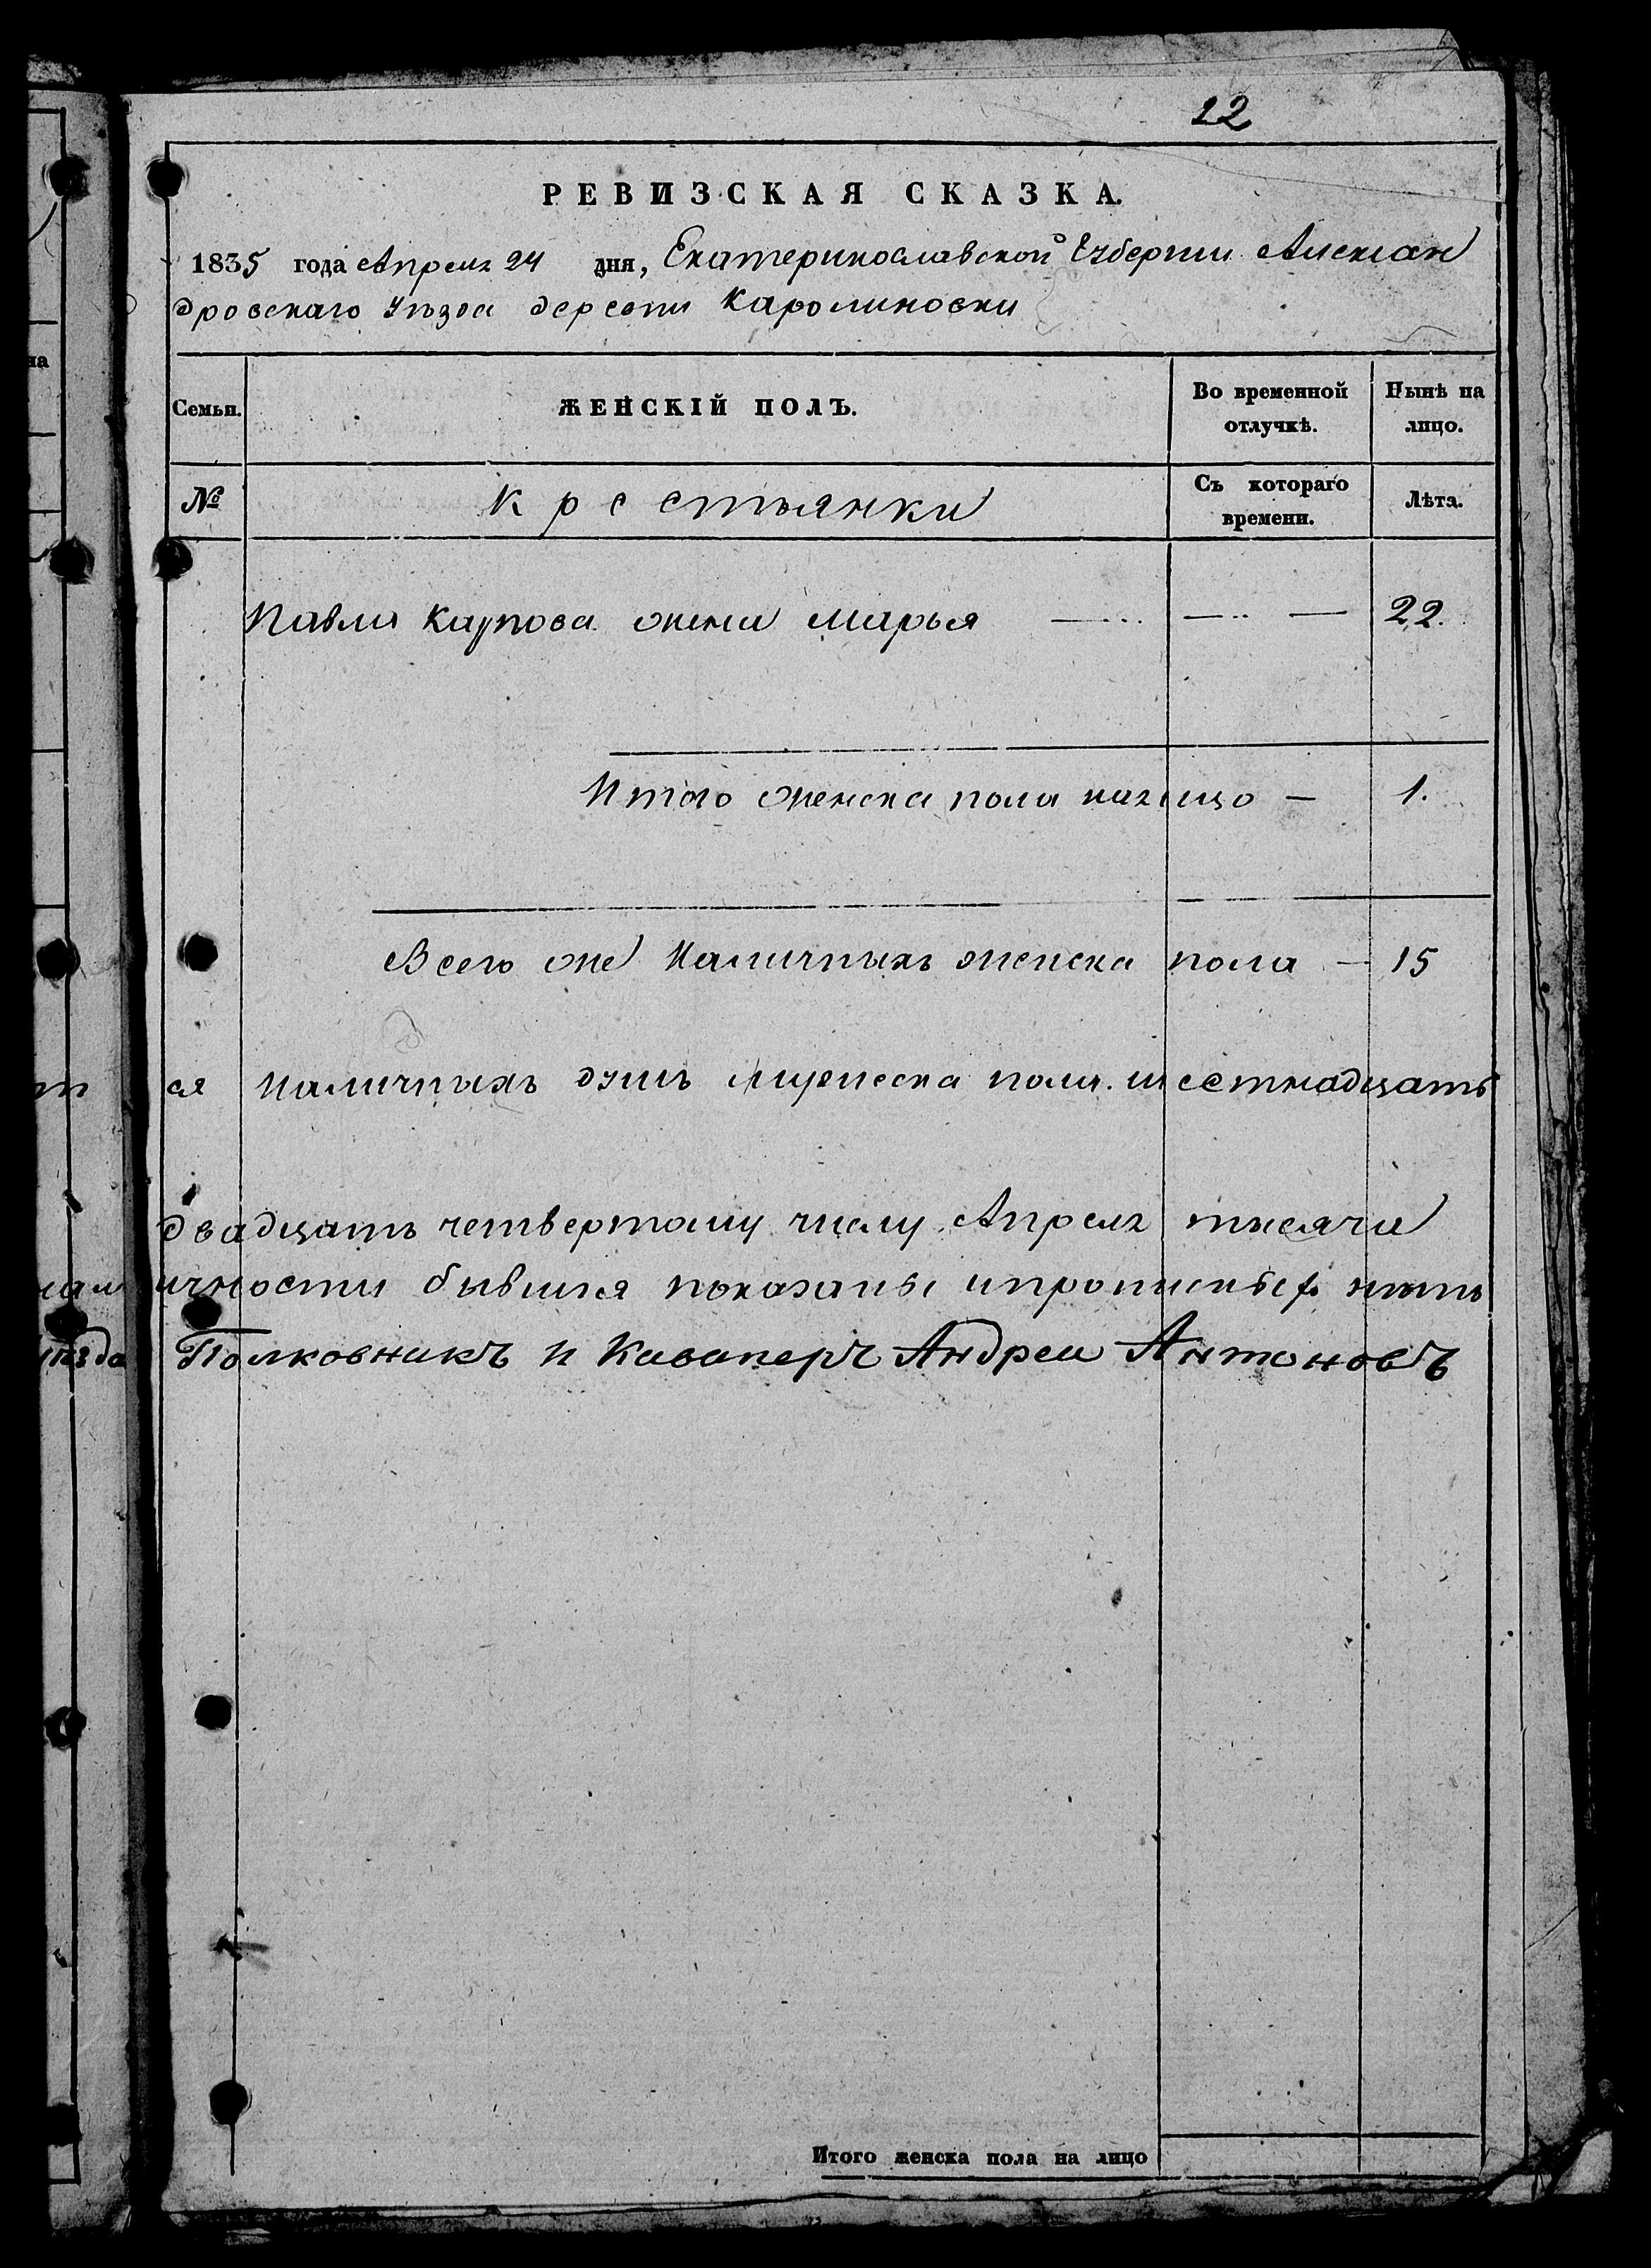 12
РЕВИЗСКАЯ СКАЗКА.
1835 года Апреля 24 дня, Екатеринославской Губернии Алексан
дровскаго Уѣзда деревни Каролиновки
Семьи. ЖЕНСКІЙ ПОЛЪ. Во временной отлучкѣ. Нынѣ на лицо.
№ Крестьянки Съ котораго времени. Лѣта.
Павла Карпова жена Марья — — — 22.
Итого женска пола налицо — 1.
Всего же Наличныхъ женска пола — 15
ся наличныхъ душъ мужеска пола шестнадцать
двадцать четвертому числу Апреля тысяча
личности бывшия показаны и нетъ
уѣзда Полковникъ и Кавалеръ Андреи Антоновъ
Итого женска пола на лицо